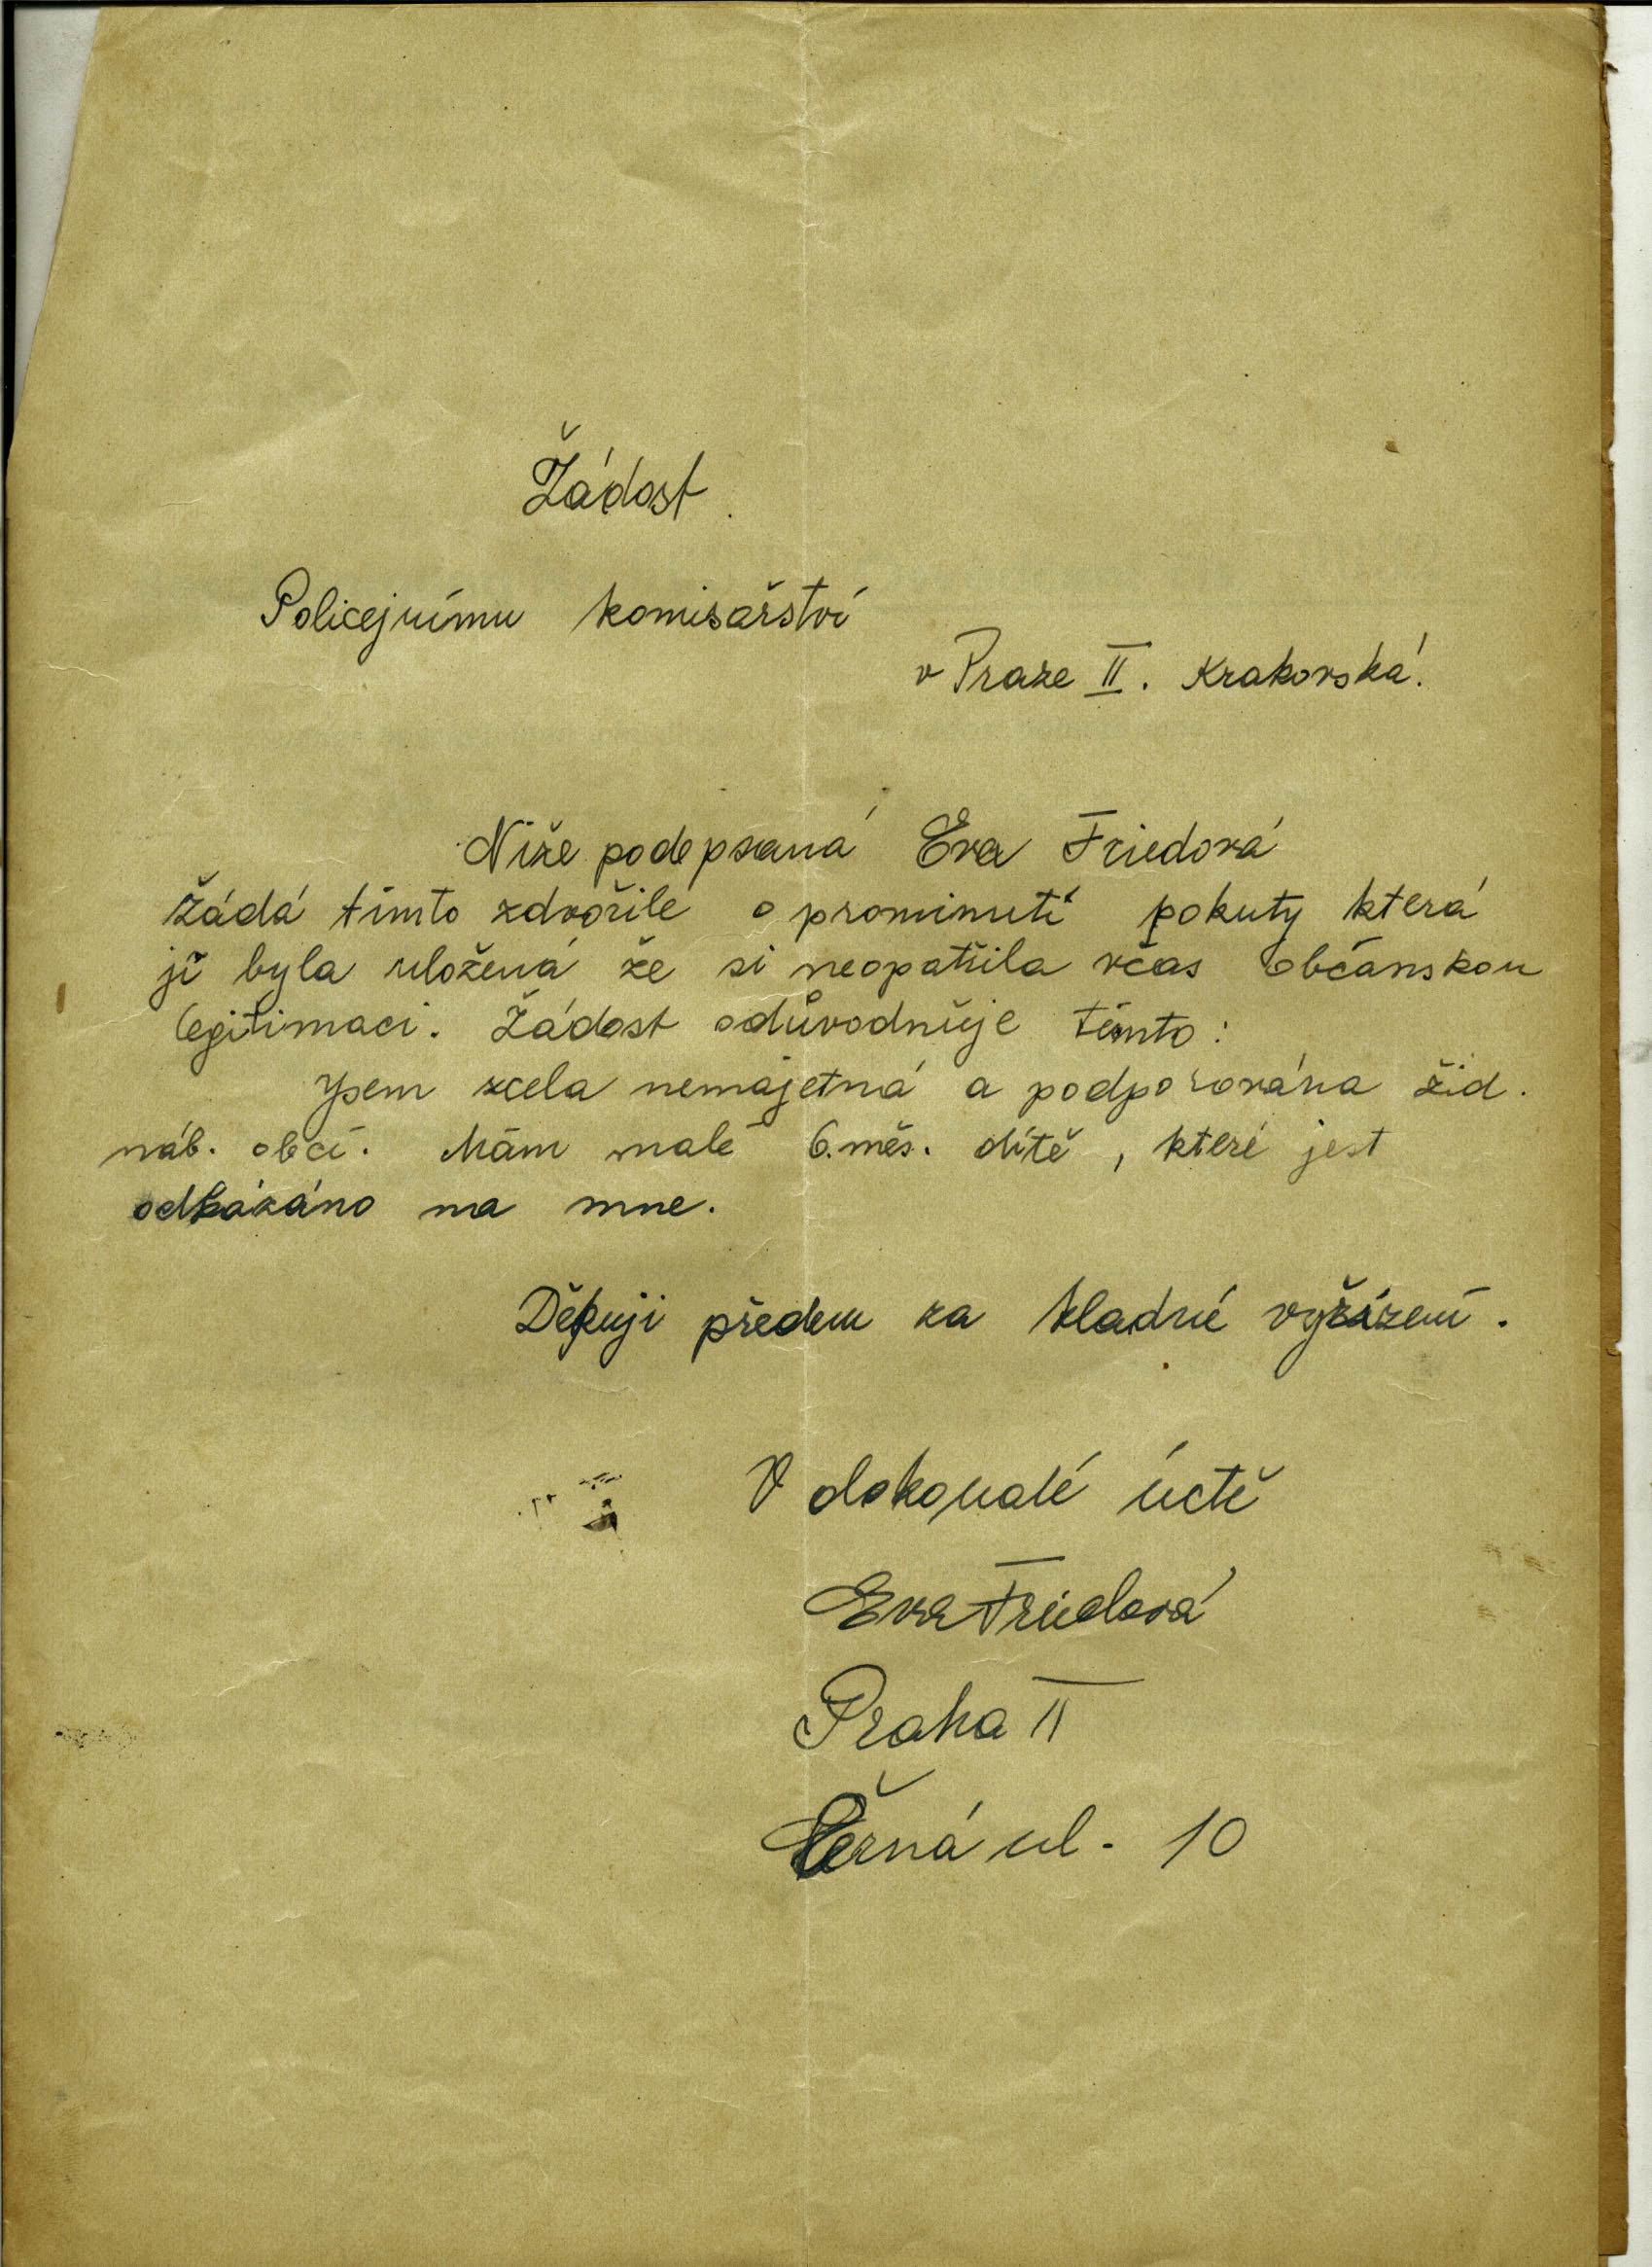 Žádost.
Policejnímu komisařství
v Praze II. Krakovská.
Níže podepsaná Eva Friedová
žádá tímto zdvořile o prominutí pokuty která
jí byla uložená že si neopatřila včas občanskou
legitimaci. Žádost odůvodnůje tímto:
Jsem zcela nemajetná a podporována žid.
náb. obcí. Mám malé 6.měs. dítě, které jest
odkázáno na mne.
Děkuji předem za kladné vyřízení.
V dokonalé úctě
Eva Friedová
Praha II
Černá ul. 10